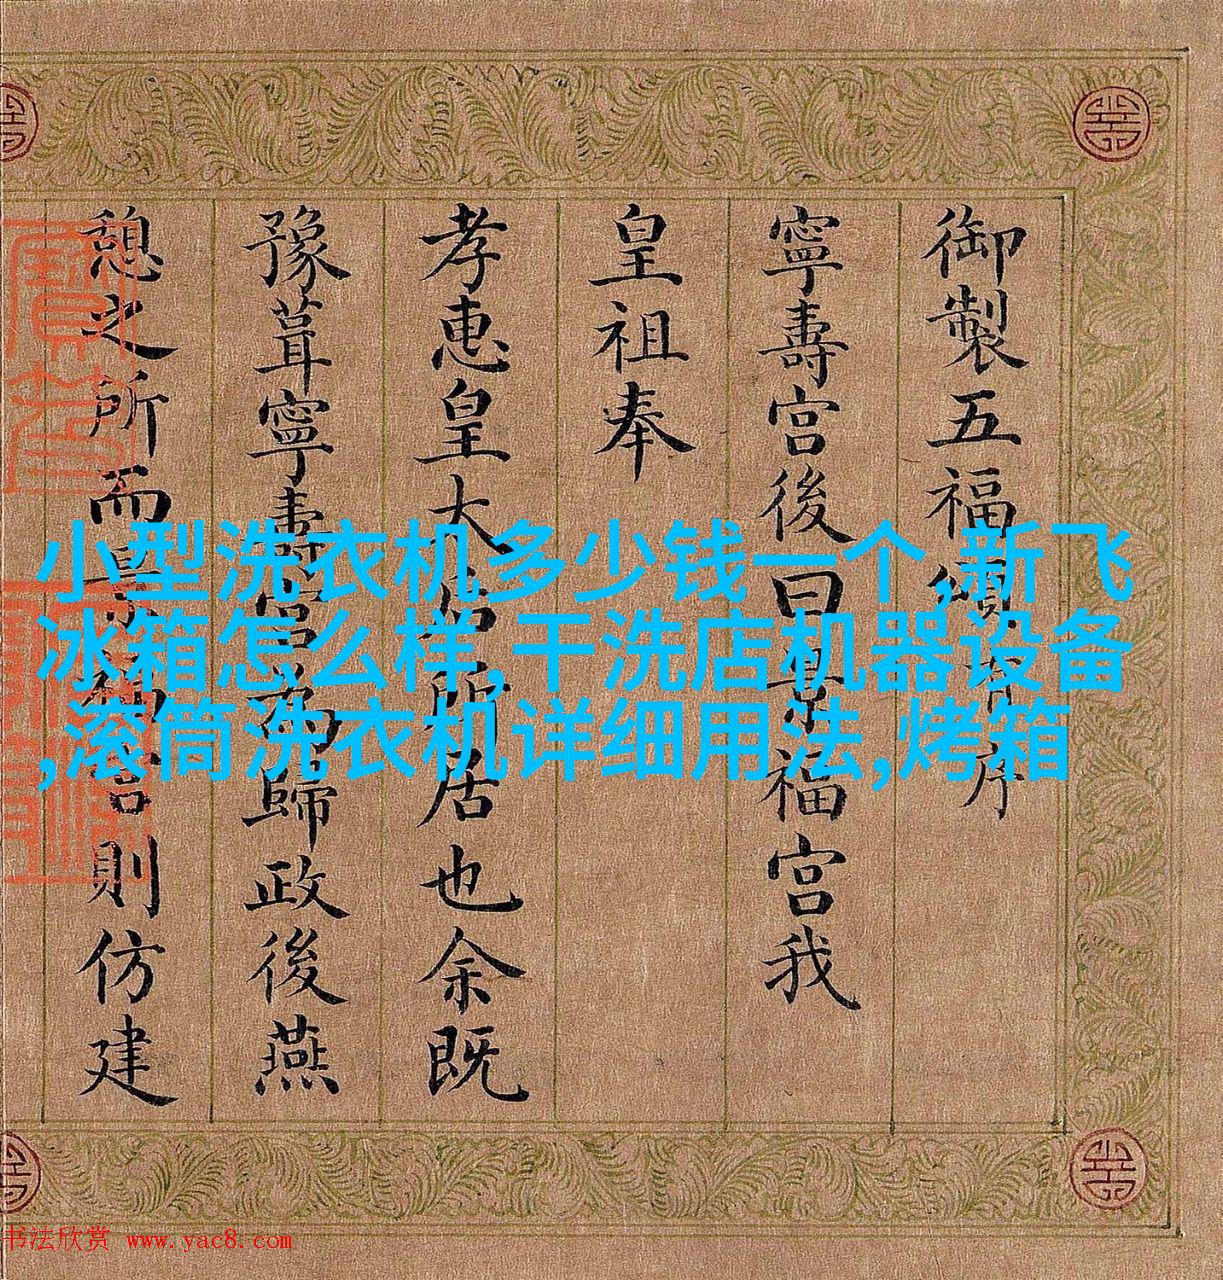 御製五福頌并序
寧壽宮後曰景福宮我
皇祖奉
孝惠皇太后所居也余既
豫葺寧壽宮為歸政後燕
憩之所而景福宮則仿建
小型洗衣机多少钱一个,新飞
冰箱怎么样,干洗店机器设备
,滚筒洗衣机详细用法,烤箱
书法欣赏 www.yac8.com